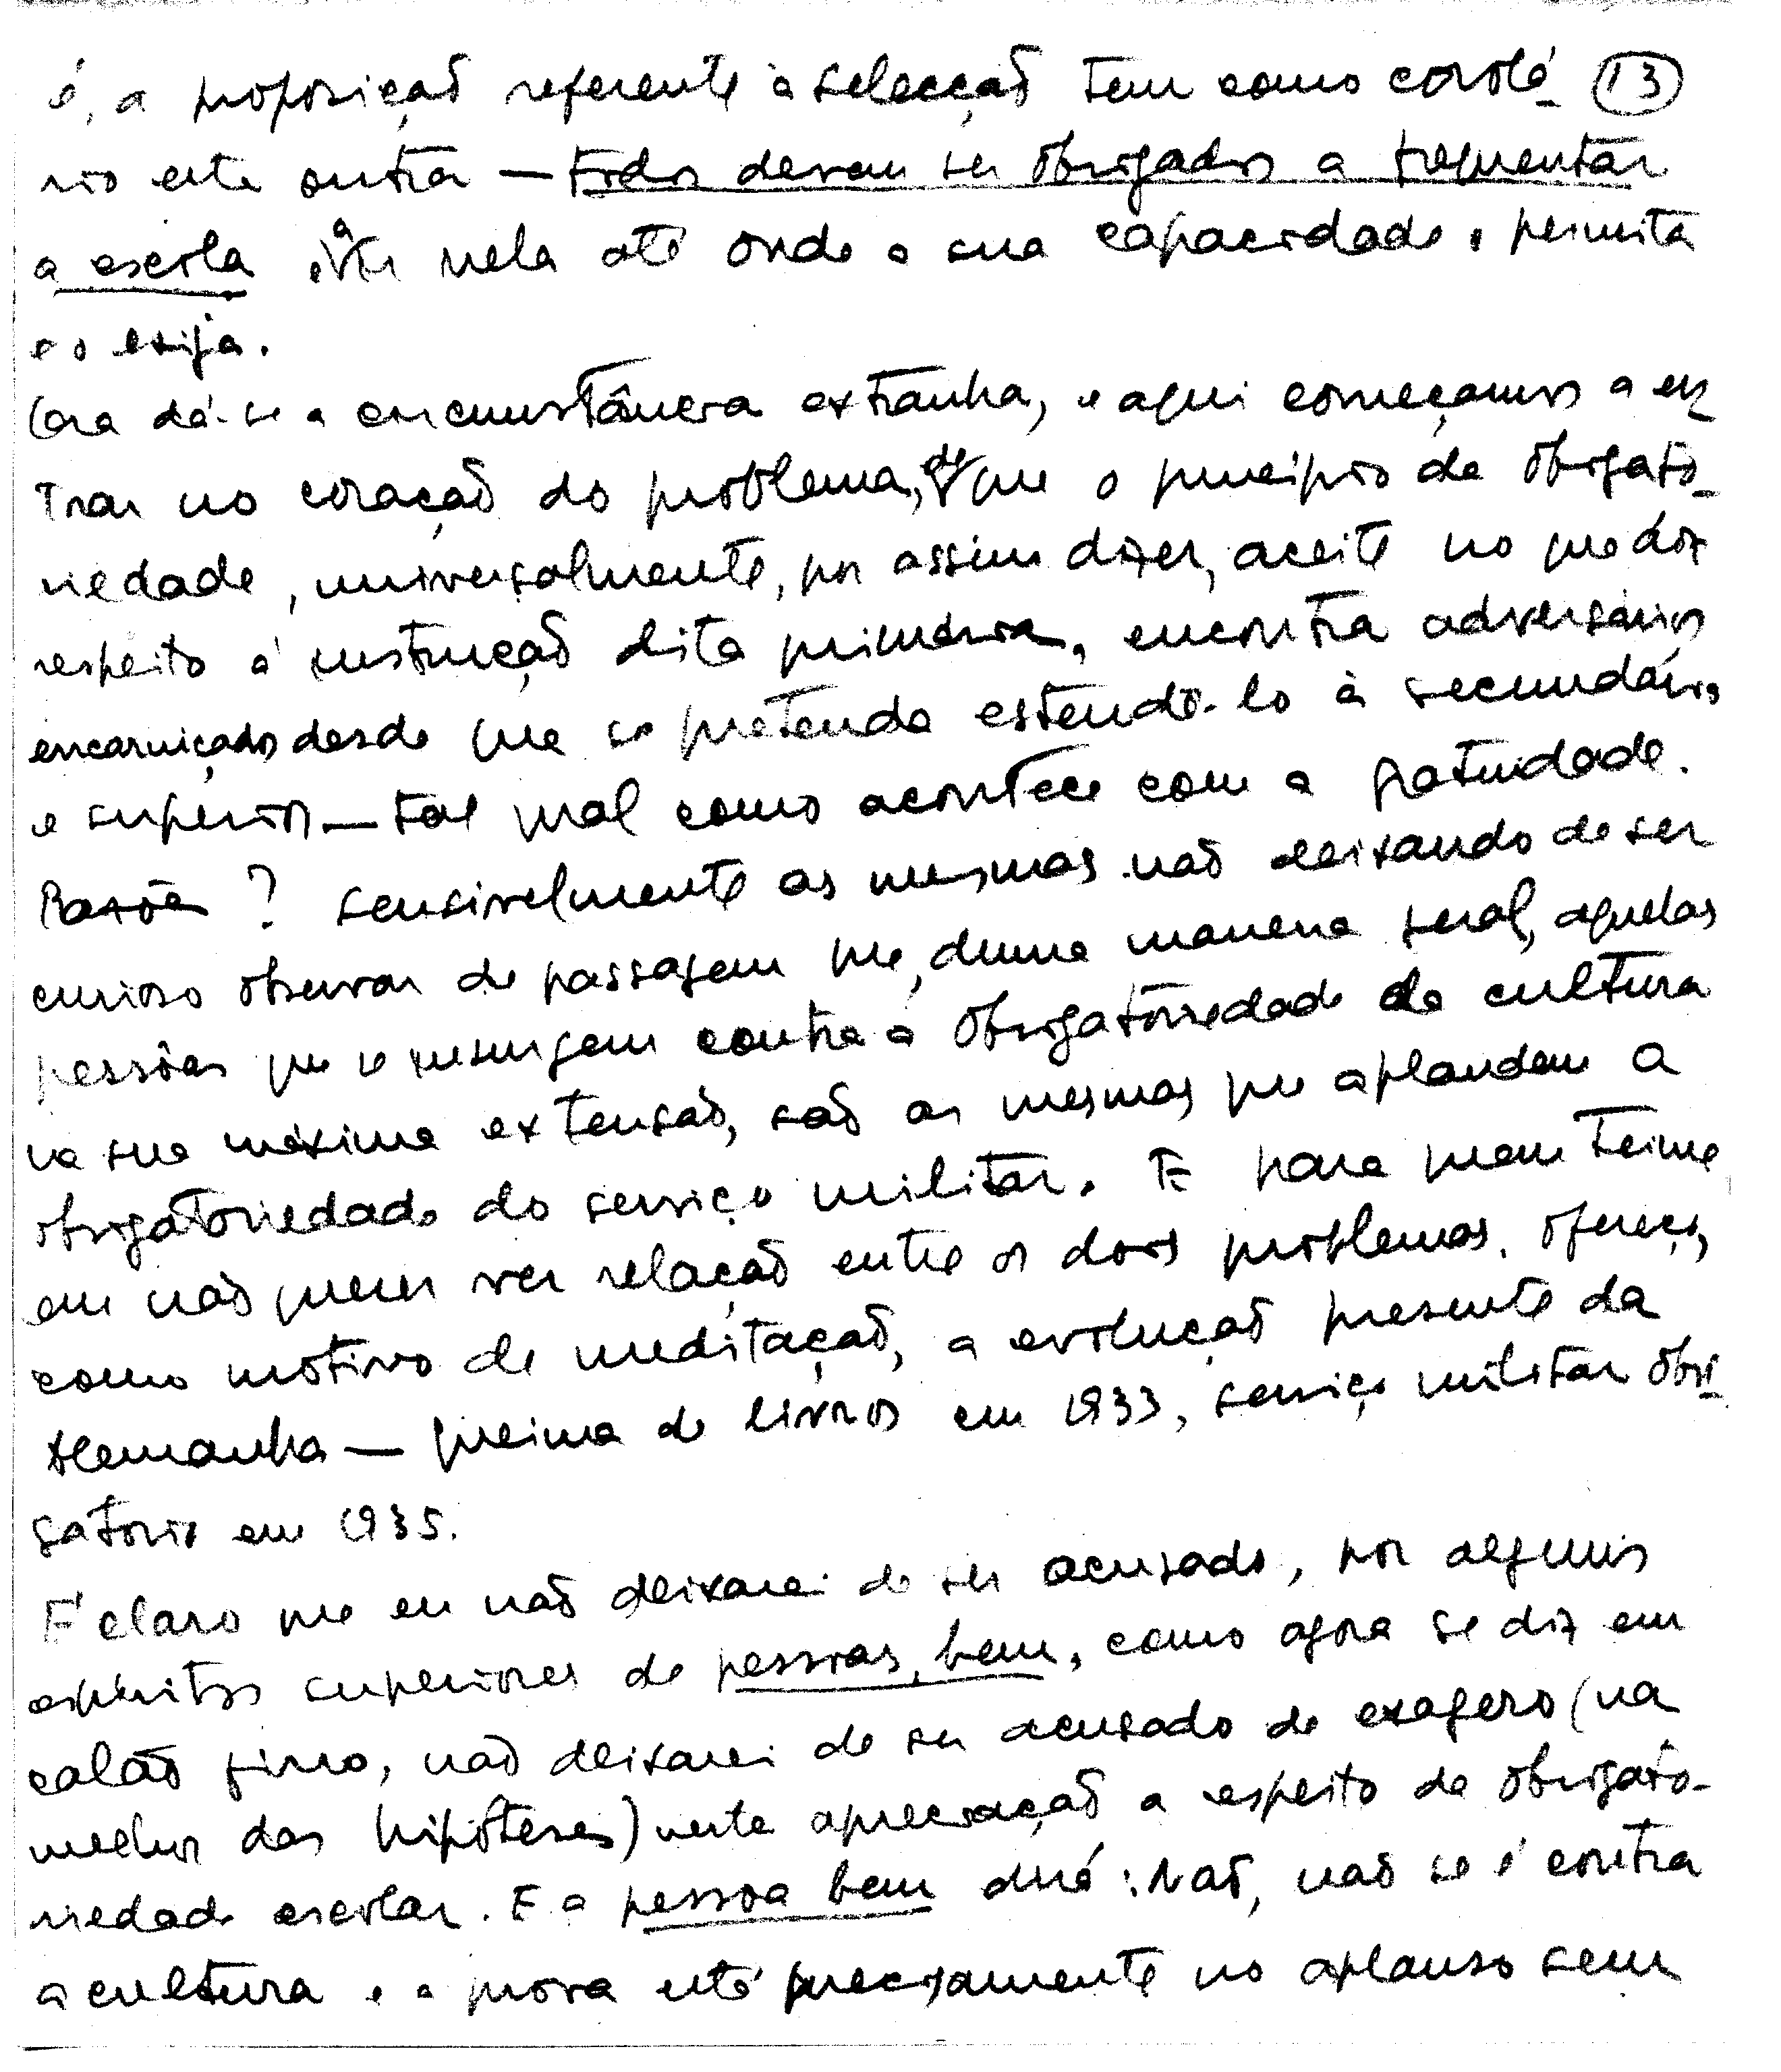 é, a proposição referente à selecção tem como corolá- 13
rio esta outra — todos devem ser obrigados a frequentar
a escola e a ir nela até onde a sua capacidade o permita
e o exija.
Ora dá-se a circunstância extranha, e aqui começamos a en-
trar no coração do problema, de que o princípio da obrigato-
riedade, universalmente, por assim dizer, aceite no que diz
respeito á instrução dita primária, encontra adversários
encarniçados desde que se pretenda estendê-lo à secundária
e superior — tal qual como acontece com a gratuidade.
Razões? Sensivelmente as mesmas não deixando de ser
curioso observar de passagem que, duma maneira geral, aquelas
pessôas que se insurgem contra a obrigatoriedade da cultura
na sua máxima extensão, são as mesmas que aplaudem a
obrigatoriedade do serviço militar. E para quem teime
em não querer ver relação entre os dois problemas, ofereço,
como motivo de meditação, a evolução presente da
Alemanha — queima de livros em 1933, serviço militar obri-
gatorio em 1935.
É claro que eu não deixarei de ser acusado, por alguns
espíritos superiores de pessoas bem, como agora se diz em
calão fino, não deixarei de ser acusado de exagero (na
melhor das hipóteses) nesta apreciação a respeito da obrigato-
riedade escolar. E a pessoa bem dirá: Não, não se é contra
a cultura e a prova está precisamente no aplauso sem